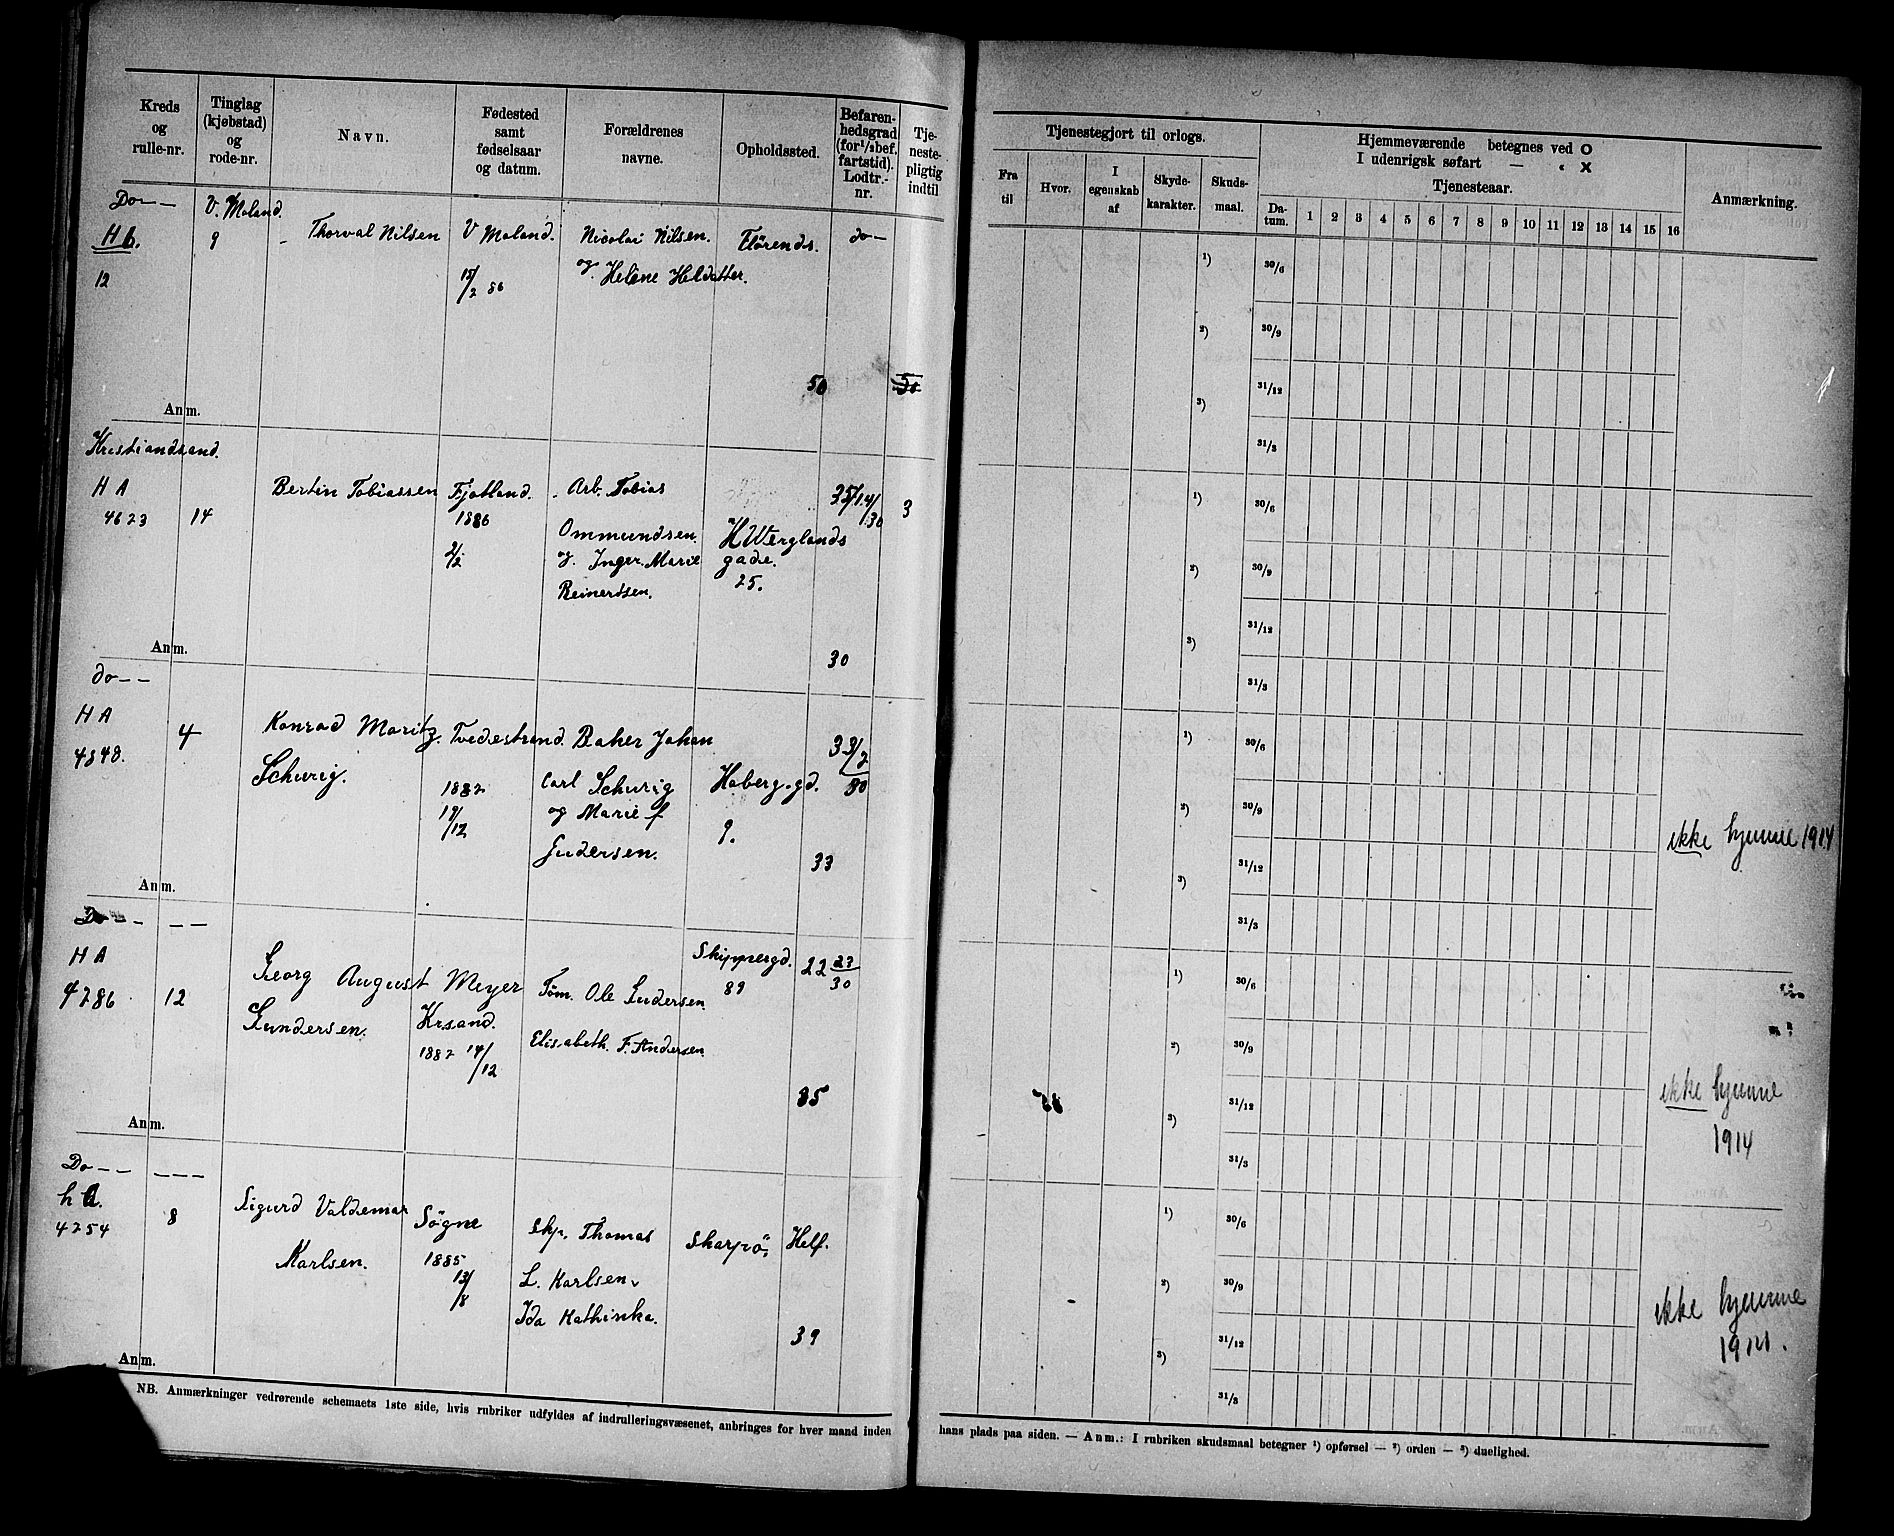 Kreds og rulle-nr.
Tinglag (kjøbstad) og rode-nr.
Navn.
Fødested samt fødselsaar og datum.
Forældrenes navne.
Opholdssted.
Befaren-hedsgrad (for 1/2 bef. fartstid). Lodtr.-nr.
Tje-neste-pligtig indtil
Tjenestegjort til orlogs.
Fra til
Hvor.
I egenskab af
Skyde-karakter.
Skuds-maal.
Hjemmeværende betegnes ved O
I udenrigsk søfart — « X
Tjenesteaar.
Da-tum.
1 2 3 4 5 6 7 8 9 10 11 12 13 14 15 16
Anmærkning.
Do — V. Moland.
H b. 9 Thorval Nilsen V Moland. Nicolai Nilsen. do —
12 15/2 86 og Helene
50
Anm.
1) 30/6
2) 30/9
3) 31/12
31/3
Kristiandsand.
H A Bertin Tobiassen Fjotland. Arb. Tobias 35/14/30 3
4623 14 1886 Ommundsen. H Werglands
2/2 og Inger Marie gade.
Reinertsen. 25.
30
Anm.
1) 30/6
2) 30/9
3) 31/12
31/3
do - -
H A 4 Konrad Moritz Tvedestrand. Baker Johan 33/2
4848. Schurig. 1882 Carl Schurig Haberg.gd. 80
19/12 og Marie f 9.
Gudersen.
33
Anm.
1) 30/6
2) 30/9
3) 31/12
31/3
ikke hjemme 1914
Do - - - -
H A Georg August Meyer Tøm. Ole Gudersen Skippergd. 22 23/30
4286 12 Gundersen. Krsand. 89
1882 14/12 Elisabeth. F. Andersen.
35
Anm.
1) 30/6
2) 30/9
3) 31/12
31/3
ikke hjemme
1914
Do - - - - -
h A. Sigurd Valdemar Søgne Skp. Thomas Skarpø, Helf.
4254 8 Karlsen. 1885 L. Karlsen.
13/8 Ida Kathinka.
39
Anm.
1) 30/6
2) 30/9
3) 31/12
31/3
ikke hjemme
1914.
NB. Anmærkninger vedrørende schemaets 1ste side, hvis rubriker udfyldes af indrulleringsvæsenet, anbringes for hver mand inden
hans plads paa siden. — Anm.: I rubriken skudsmaal betegner 1) opførsel — 2) orden — 3) duelighed.